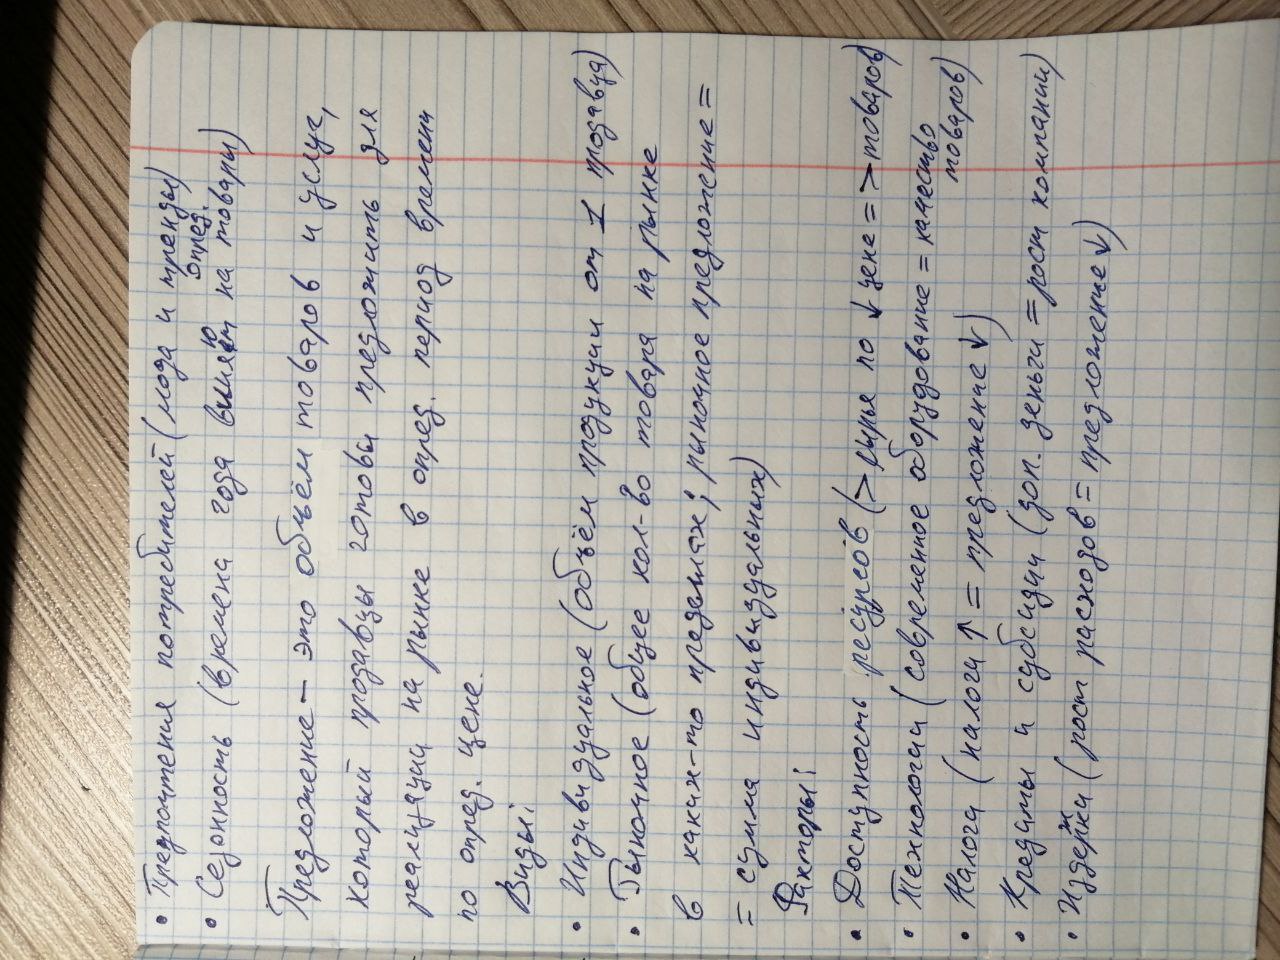 • Предпочтения потребителей (мода и тренды)
• Сезонность (времена года влияют на опред. товары)
Предложение - это объём товаров и услуг,
который продавцы готовы предложить для
реализации на рынке в опред. период времени
по опред. цене.
Виды:
• Индивидуальное (объём продукции от 1 продавца)
• Рыночное (общее кол-во товара на рынке
в каких-то пределах; рыночное предложение =
= сумма индивидуальных)
Факторы:
• Доступность ресурсов (> сырья по ↓ цене = > товаров)
• Технологии (современное оборудование = качество
товаров)
• Налоги (налоги ↑ = предложение ↓)
• Кредиты и субсидии (доп. деньги = рост компании)
• Издержки (рост расходов = предложение ↓)